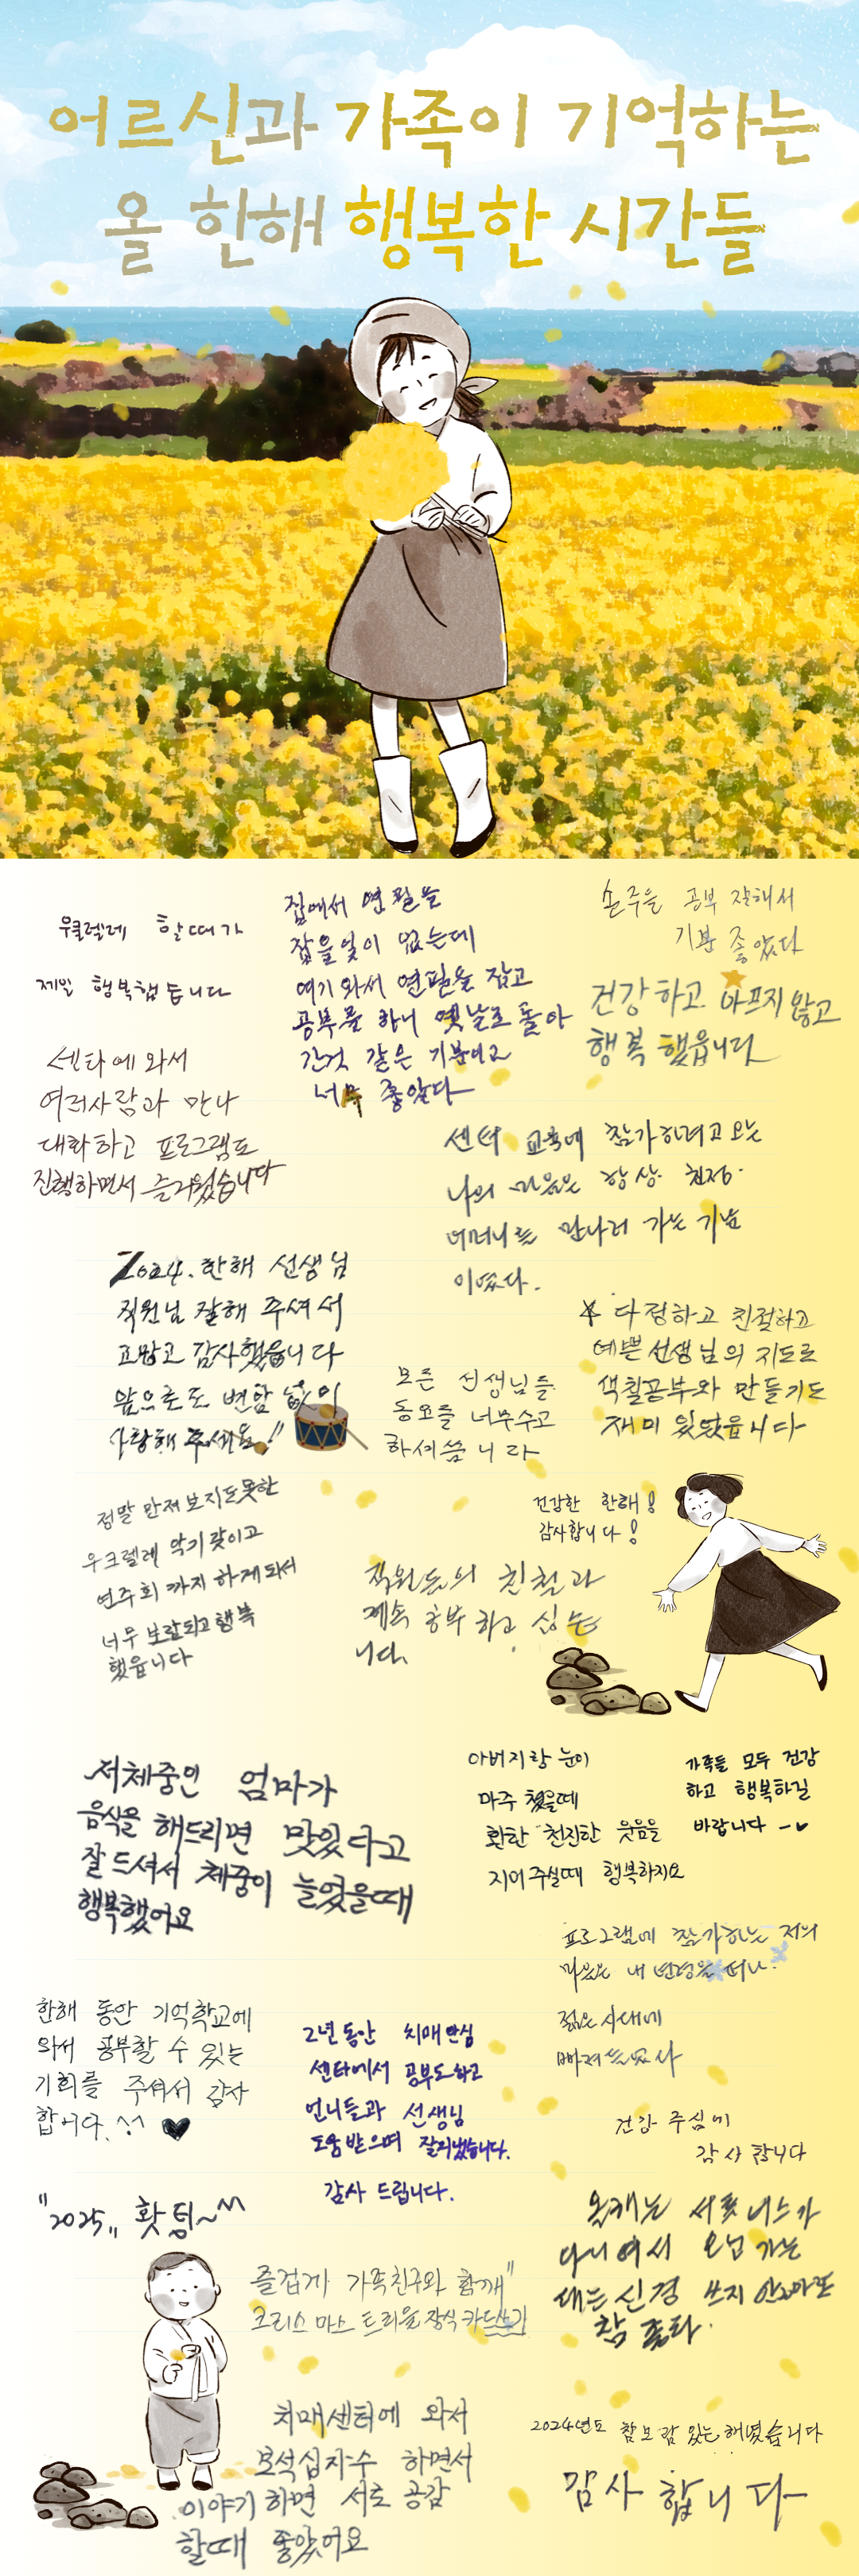 어르신과 가족이 기억하는
올 한해 행복한 시간들
우쿨렐레 할때가
제일 행복햅습니다
집에서 연필을
잡을일이 없는데
여기 와서 연필을 잡고
공부를 하니 옛날로 돌아
간것 같은 기분이고
너무 좋았다
손주을 공부 잘해서
기분 좋았다
건강하고 아프지않고
행복 했읍니다
센타에 와서
여러사람과 만나
대화하고 프로그램도
진행하면서 즐거웠습니다
센터 교육에 참가하려고 오는
나의 마음은 항상 친정
어머니를 만나러 가는 기분
이였다.
2024. 한해 선생님
직원님 잘해 주셔서
고맙고 감사했읍니다
앞으로도 변함 없이
사랑해 주세요!!
다정하고 친절하고
예쁜 선생님의 지도로
색칠공부와 만들기도
재미 있었읍니다
모든 선생님들
너무수고
하셔씀니다
정말 만져보지도못한
우크렐레 악기
연주회 까지 하게되서
너무 보람되고 행복
했읍니다
건강한 한해!
감사합니다!
직원들의 친절과
계속 공부하고 싶
니다.
저체중인 엄마가
음식을 해드리면 맛있다고
잘 드셔서 체중이 늘었을때
행복했어요
아버지랑 눈이
마주 쳤을때
환한 천진한 웃음을
지어주실때 행복하지요
가족들 모두 건강
하고 행복하길
바랍니다
프로그램에 참가하는 저의
마음은 내
젊은 시대에
한해 동안 기억학교에
와서 공부할 수 있는
기회를 주셔서 감사
합니다. ^^ ♥
2년동안 치매안심
센타에서 공부도하고
언니들과 선생님
도움받으며 잘지냈습니다.
감사 드립니다.
건강 주심에
감사 합니다
"2025" 홧팅~^^
올해는 서포니스가
다니여서
신경 쓰지 안고마도
참 좋타.
즐겁게 가족친구와 함께"
크리스마스 트리을 장식 카드쓰기
치매센터에 와서
보석십자수 하면서
이야기하면 서로 공감
할때 좋았어요
2024년도 참보람 있는 해였습니다
감사 합니다